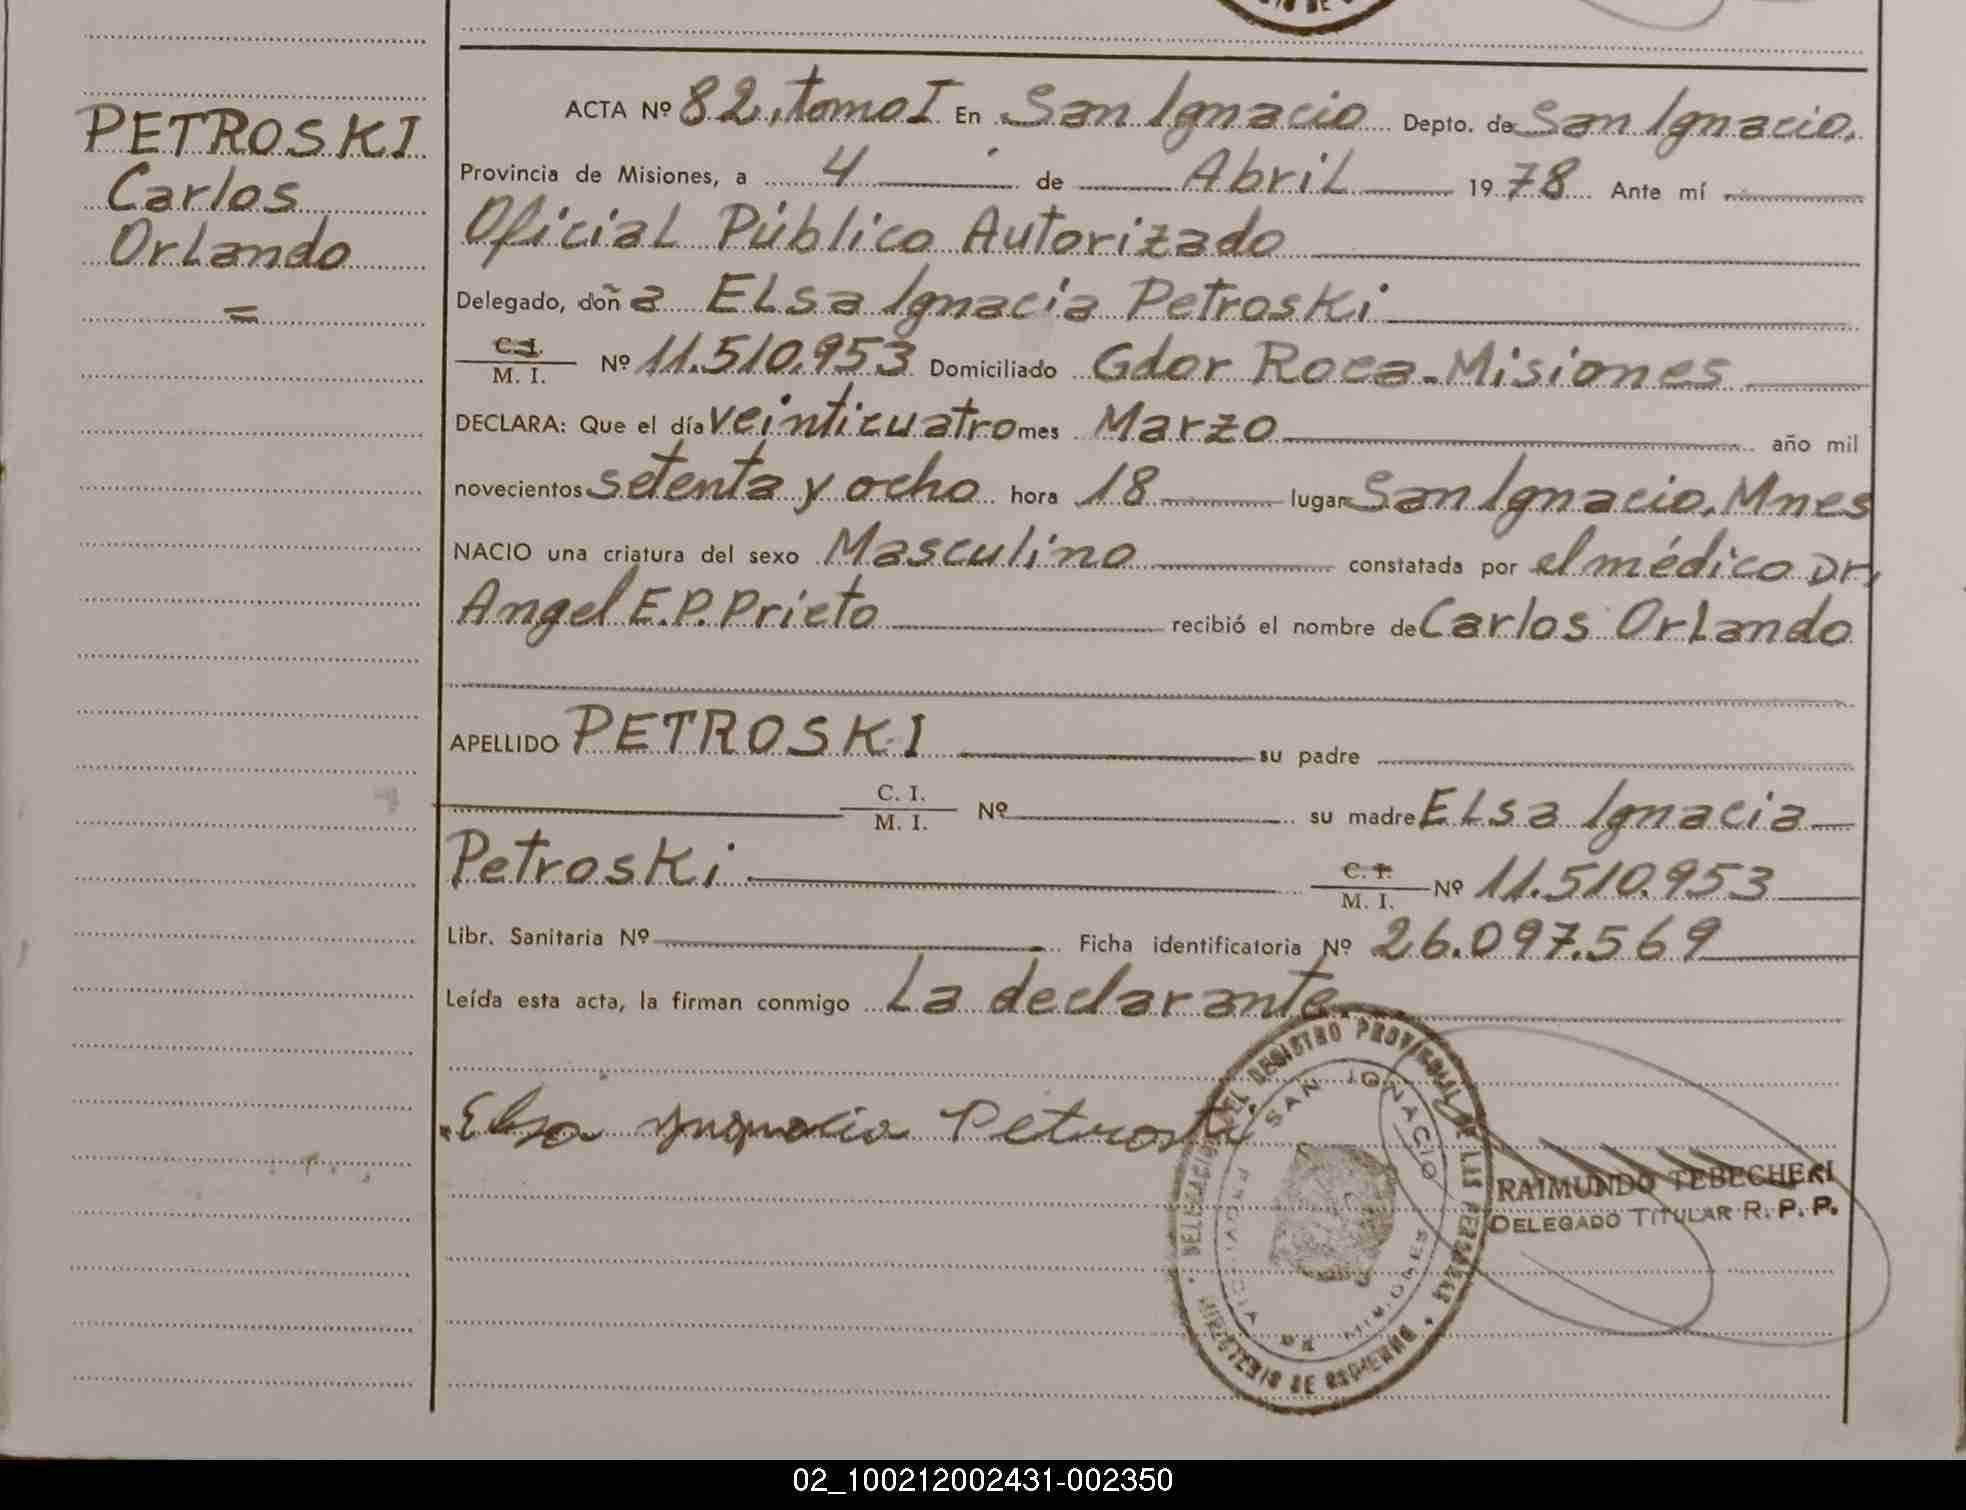 PETROSKI
Carlos
Orlando
=
ACTA Nº 82, tomo I En San Ignacio Depto. de San Ignacio,
Provincia de Misiones, a 4 de Abril 1978 Ante mí
Oficial Público Autorizado
Delegado, doña Elsa Ignacia Petroski
C. I.
M. I. Nº 11.510.953 Domiciliado Gdor Roca-Misiones
DECLARA: Que el día veinticuatro mes Marzo año mil
novecientos setenta y ocho hora 18 lugar San Ignacio, Mnes
NACIO una criatura del sexo Masculino constatada por el médico Dr,
Angel E.P. Prieto recibió el nombre de Carlos Orlando
APELLIDO PETROSKI su padre
C. I.
M. I. Nº su madre Elsa Ignacia
Petroski C. I.
M. I. Nº 11.510.953
Libr. Sanitaria Nº Ficha identificatoria Nº 26.097.569
Leída esta acta, la firman conmigo La declarante.
Elsa Ignacia Petroski
DELEGACION DEL REGISTRO PROVINCIAL DE LAS PERSONAS
SAN IGNACIO
PROVINCIA DE MISIONES
MINISTERIO DE GOBIERNO
RAIMUNDO TEBECHERI
DELEGADO TITULAR R. P. P.
02_100212002431-002350